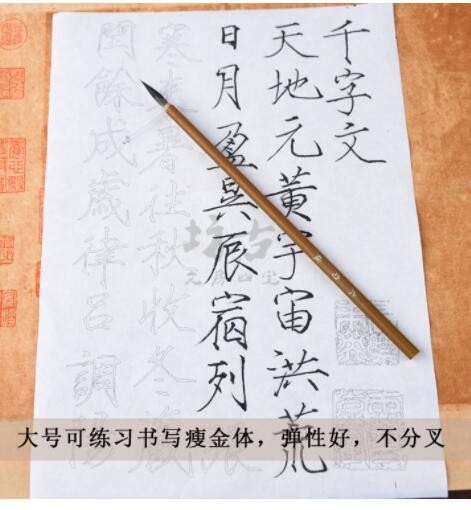 千字文
天地元黃宇宙洪荒
日月盈昃辰宿列張
寒來暑往秋收冬藏
閏餘成歲律呂調陽
大号可练习书写瘦金体，弹性好，不分叉